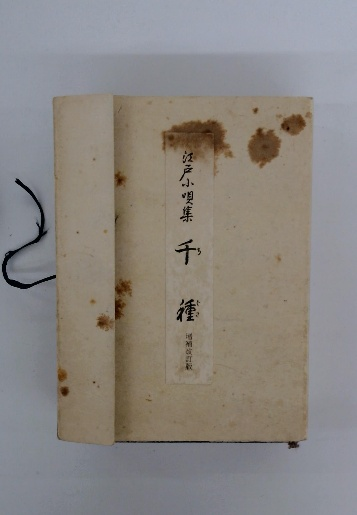 江戸小唄集
千種
ちぐさ
増補改訂版